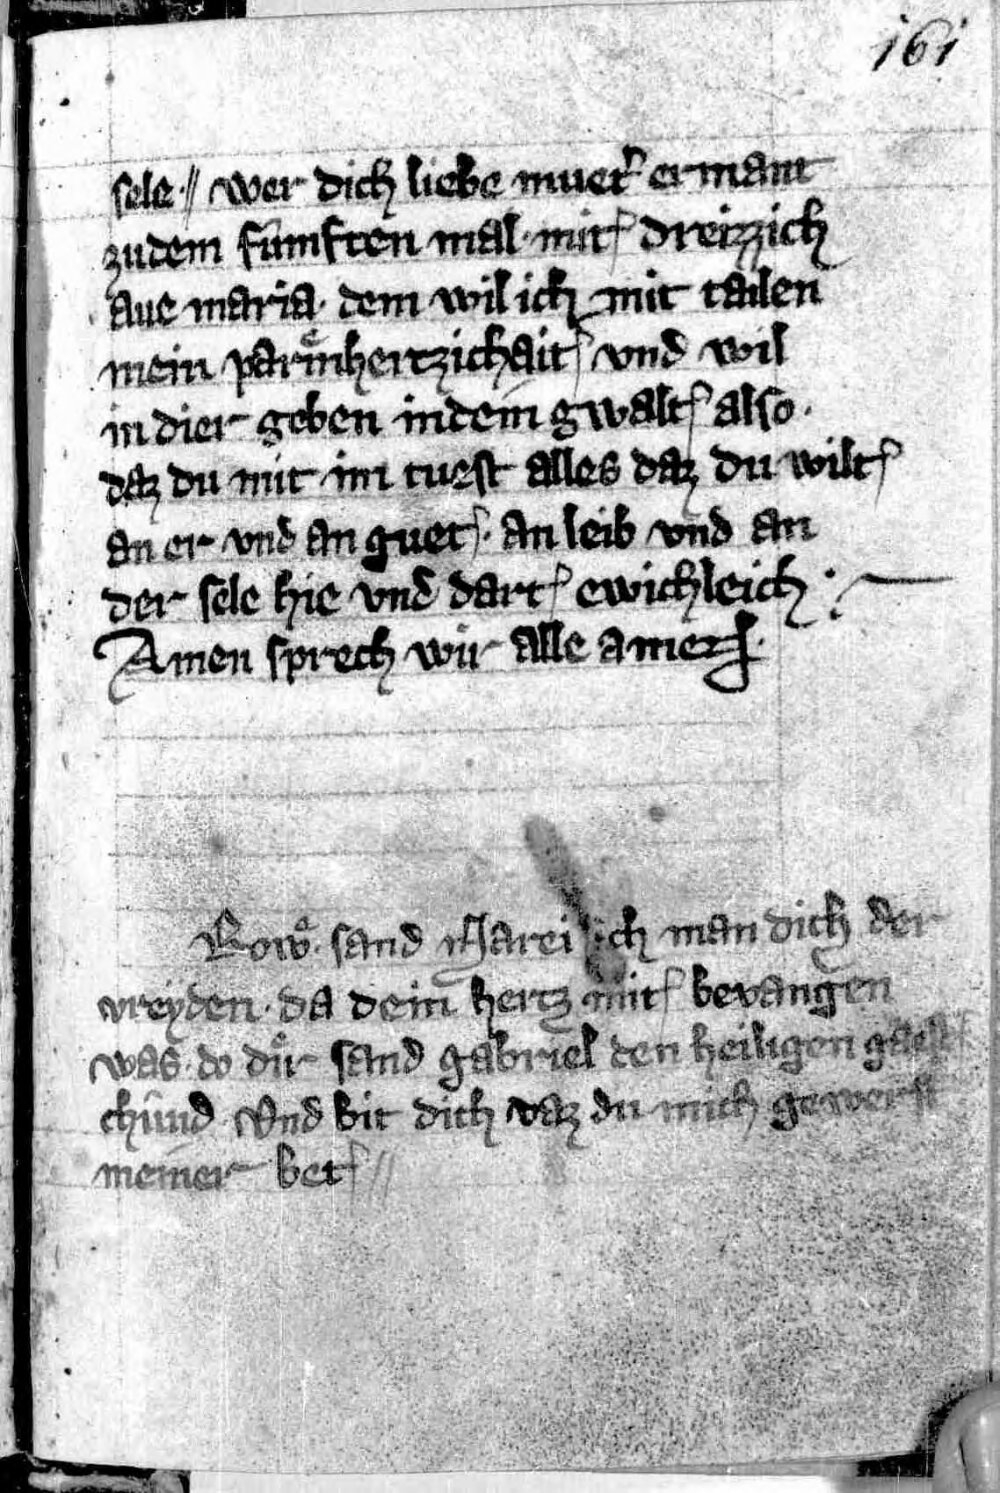 161
sele·// wer dich liebe mueter ermant
zudem fůmften mal· mit dreizzich
aue maria· dem wil ich mit tailen
mein parmhertzichait vnd wil
in dier geben indein gwalt also·
daz du mit im tuest alles daz du wilt
an er vnd an guet· an leib vnd an
der sele hie vnd dart ewichleich :
Amen sprech wir alle amen·
sand Marei ich man dich der
vreyden· da dein hertz mit bevangen
was· do dir sand gabriel den heiligen gaest
chund Vnd bit dich daz du mich gewerst
meiner bet //